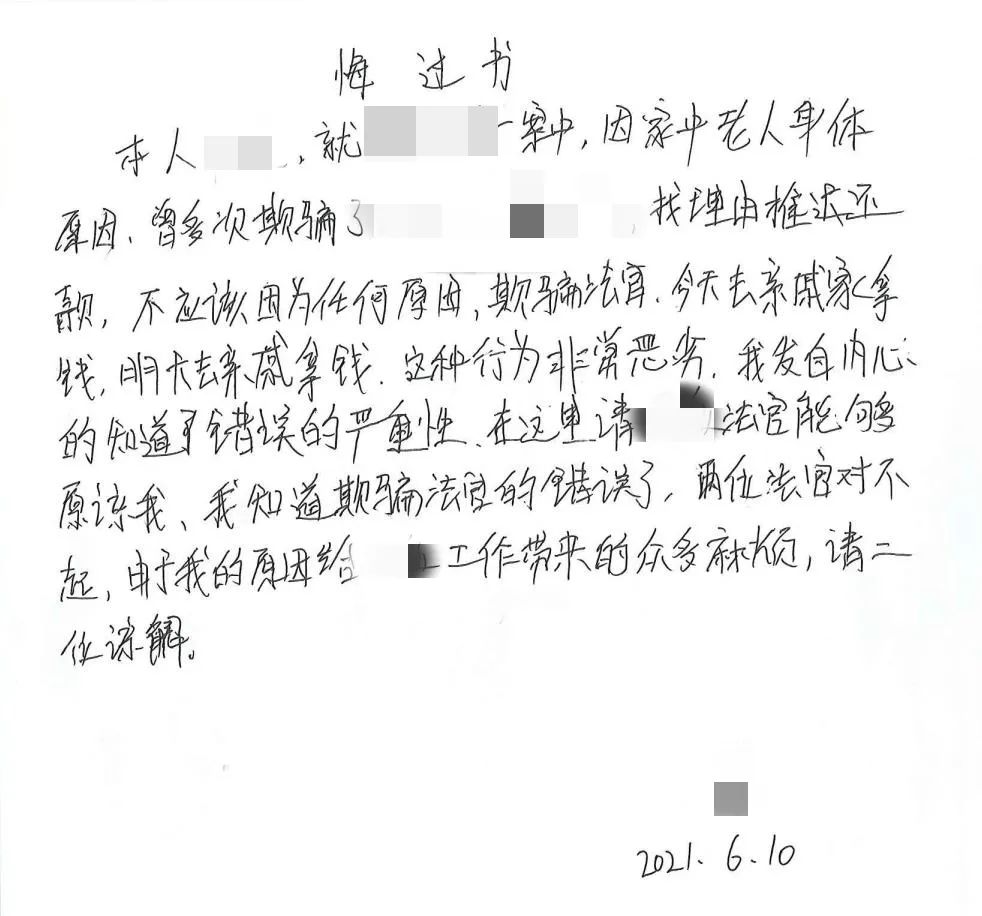 悔过书
本人,就一案中,因家中老人身体
原因、曾多次欺骗了找理由推法还
款,不应该因为任何原因,欺骗法官.今天去亲戚家拿
钱,明天去亲戚拿钱.这种行为非常恶劣.我发自内心
的知道了错误的严重性、在这里请法官能够
原谅我、我知道欺骗法官的错误了,两位法官对不
起,由于我的原因给工作带来的众多麻烦,请二
位谅解。
2021.6.10